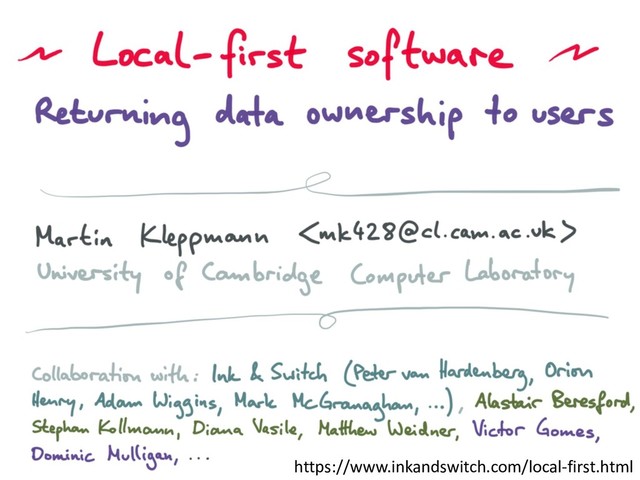 ~ Local-first software ~
Returning data ownership to users
Martin Kleppmann <mk428@cl.cam.ac.uk>
University of Cambridge Computer Laboratory
Collaboration with: Ink & Switch (Peter van Hardenberg, Orion
Henry, Adam Wiggins, Mark McGranaghan, ...), Alastair Beresford,
Stephan Kollmann, Diana Vasile, Matthew Weidner, Victor Gomes,
Dominic Mulligan, ...
https://www.inkandswitch.com/local-first.html